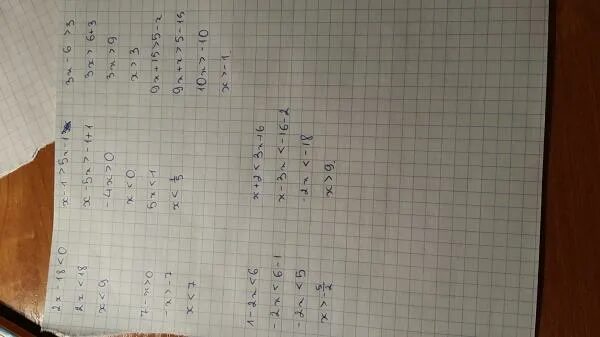 2x - 18 < 0
2x < 18
x < 9
7 - x > 0
-x > -7
x < 7
1 - 2x < 6
-2x < 6 - 1
-2x < 5
x > -5/2
x - 1 > 5x - 1
x - 5x > -1 + 1
-4x > 0
x < 0
5x < 1
x < 1/5
x + 2 < 3x - 16
x - 3x < -16 - 2
-2x < -18
x > 9.
3x - 6 > 3
3x > 6 + 3
3x > 9
x > 3
9x + 15 > 5 - x
9x + x > 5 - 15
10x > -10
x > -1.